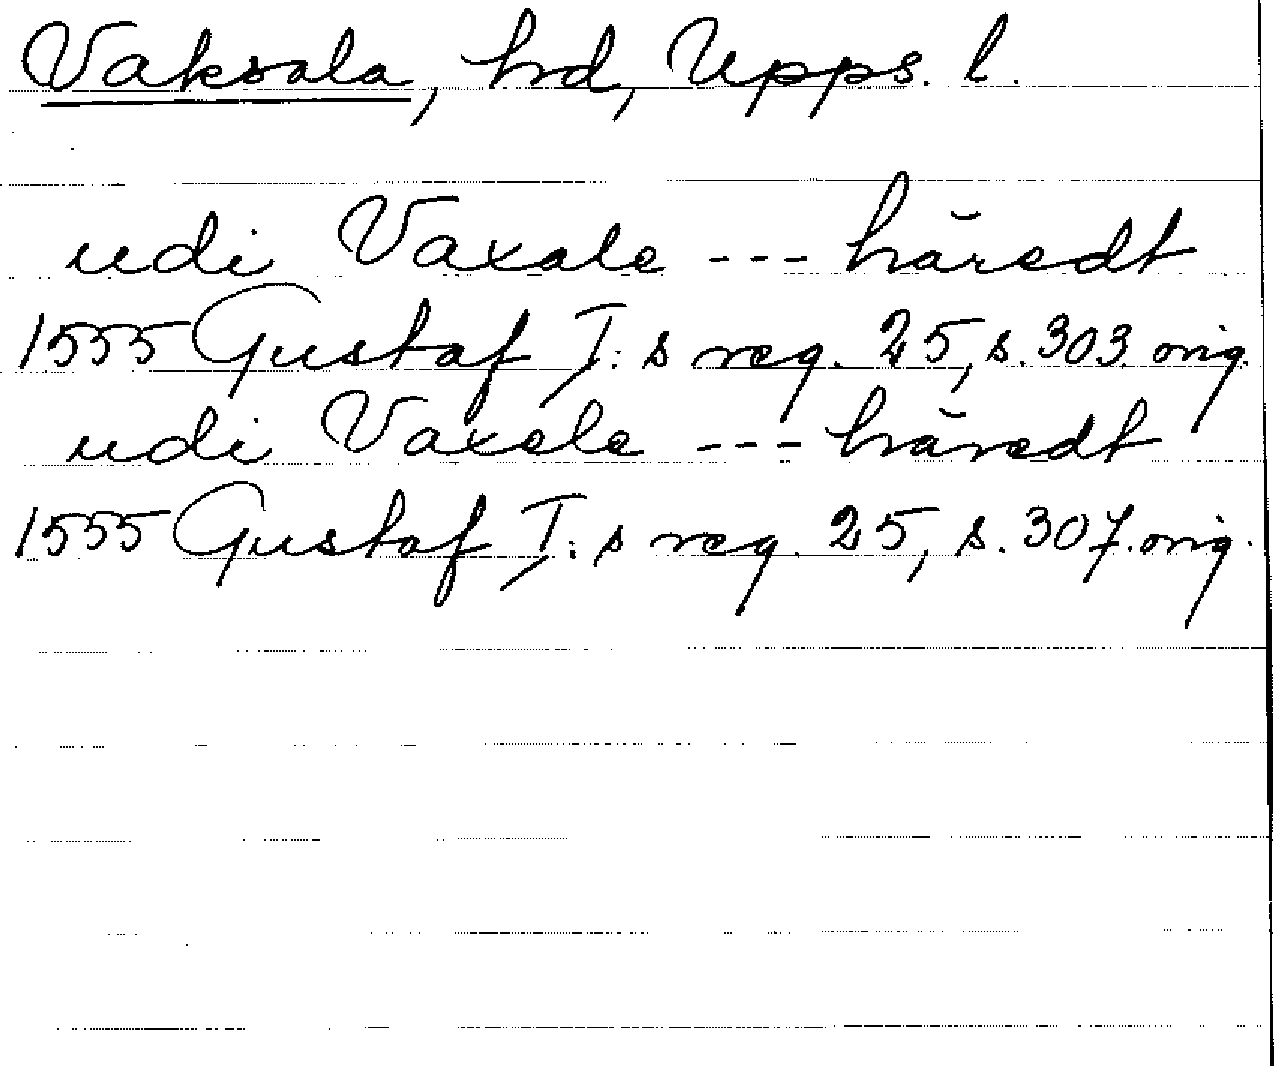 Vaksala, hd, Upps. l.
udi Vaxale --- häredt
1555 Gustaf I:s reg. 25, s. 303. orig.
udi Vaxele --- häredt
1555 Gustaf I:s reg. 25, s. 307. orig.